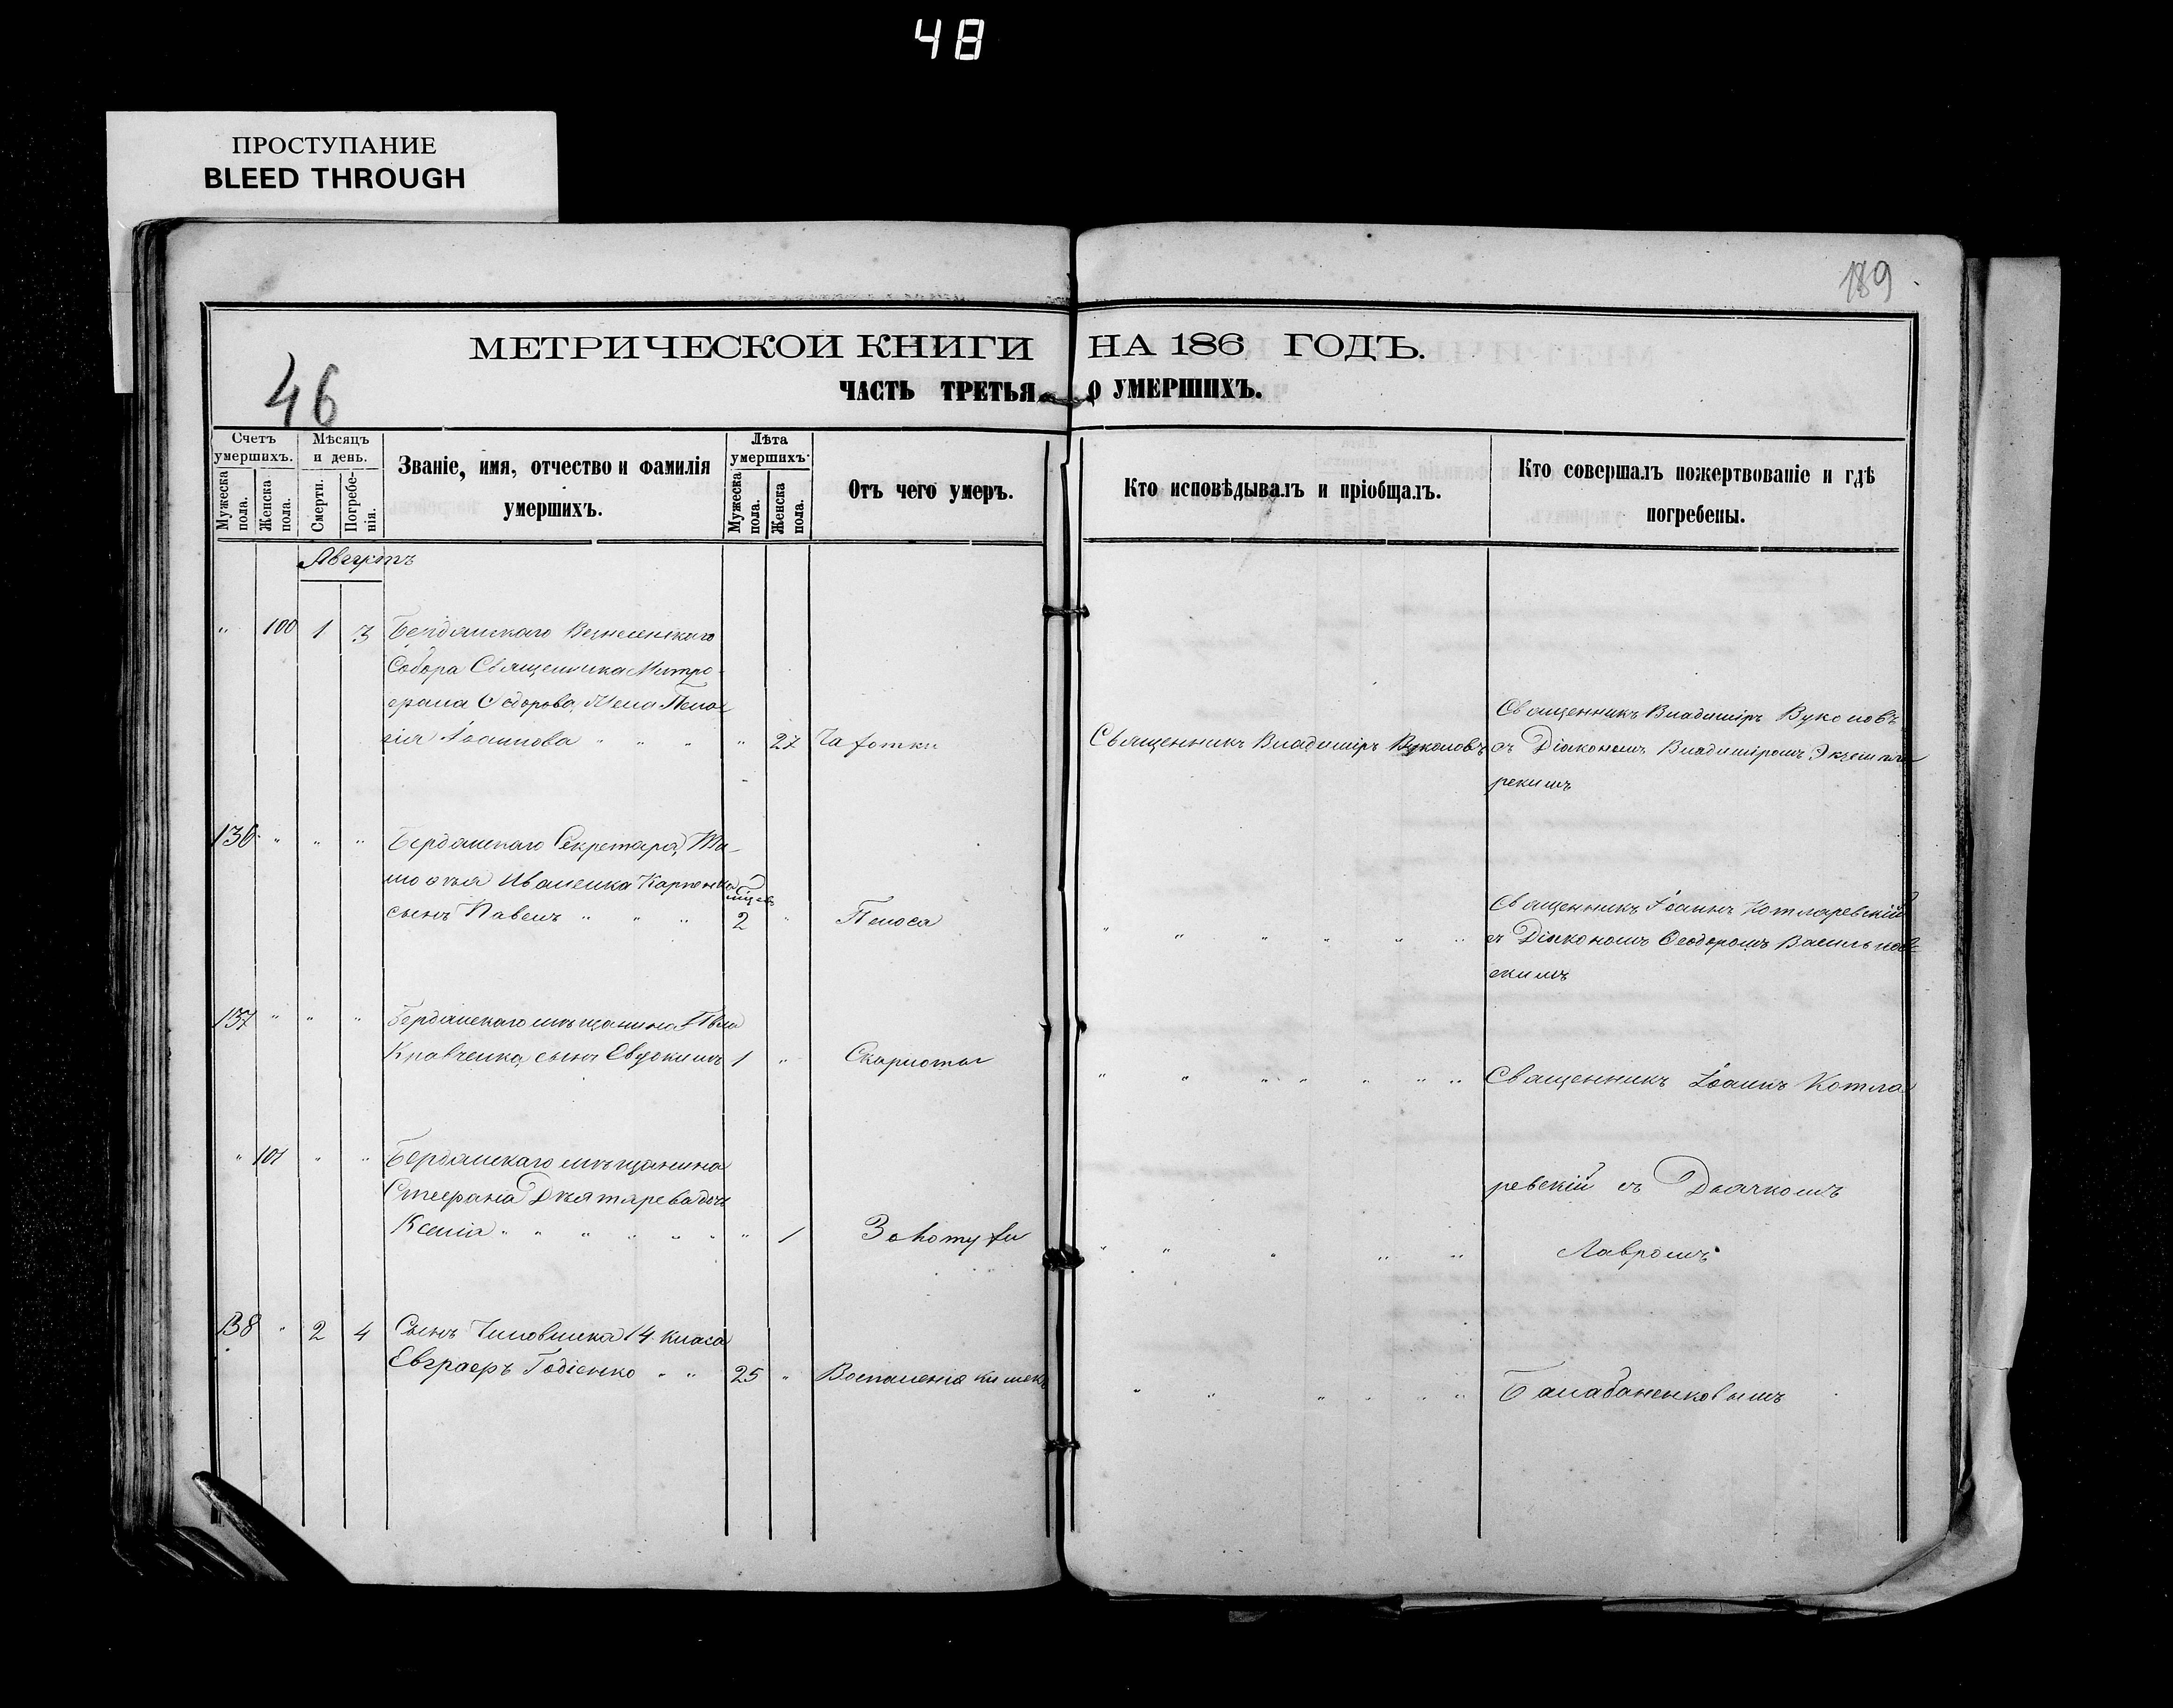 48
ПРОСТУПАНИЕ
BLEED THROUGH
189
МЕТРИЧЕСКОЙ КНИГИ НА 186 ГОДЪ.
46
ЧАСТЬ ТРЕТЬЯ О УМЕРШИХЪ.
Счетъ умершихъ.
Мужеска пола.
Женска пола.
Мѣсяцъ и день.
Смерти.
Погребенія.
Званіе, имя, отчество и фамилія
умершихъ.
Лѣта умершихъ.
Мужеска пола.
Женска пола.
Отъ чего умеръ.
Кто исповѣдывалъ и пріобщалъ.
Кто совершалъ пожертвованіе и гдѣ
погребены.
Августъ
" 100 1 3 Бердянскаго Вознесенскаго
Собора Священника Митро-
фана Ѳедорова, Жена Пела-
гія Іоаннова " " " " 27 Чахотки
Священникъ Владиміръ Вуколовъ
Священникъ Владиміръ Вуколовъ
съ Діакономъ Владиміромъ Экземпля
рскимъ
136 " " " Бердянскаго Секретаря, Ти-
моѳея Иваненка Карпенко
сынъ Павелъ " " " 2 " Поноса
" " " " " "
Священникъ Іоаннъ Котляревскій
съ Діакономъ Ѳеодоромъ Васильков-
скимъ
137 " " " Бердянскаго мѣщанина
Кравченка, сынъ Евдокимъ 1 " Скарлоты
" " " " " " "
Священникъ Іоаннъ Котля
" 101 " " Бердянскаго мѣщанина
Стефана Дехтярева дочь
Ксенія " " " " " " " 1 Золотухи
" " " " "
ревскій съ Дьячкомъ
Лавромъ
138 " 2 4 Сынъ Чиновника 14 класа
Евграфъ Годіенко " " 25 " Воспаленія кишекъ
" " " " " "
Балабаненковымъ